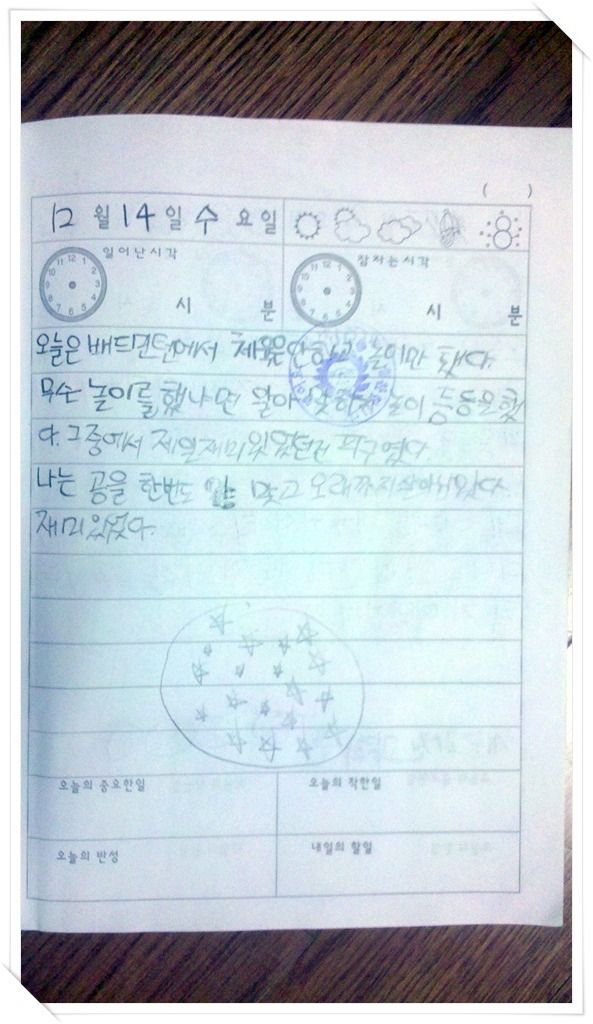 ( )
12 월 14 일 수 요일
일어난시각
잠자는시각
시 분
시 분
오늘은 배드민턴에서 체육은 안하고 놀이만 했다.
무슨 놀이를 했냐면 놀이 등등을 했
다. 그중에서 제일 재미있었던건 피구였다
나는 공을 한번도 안 맞고 오래까지 살아있었다
재미있었다.
오늘의 중요한일
오늘의 착한일
오늘의 반성
내일의 할일